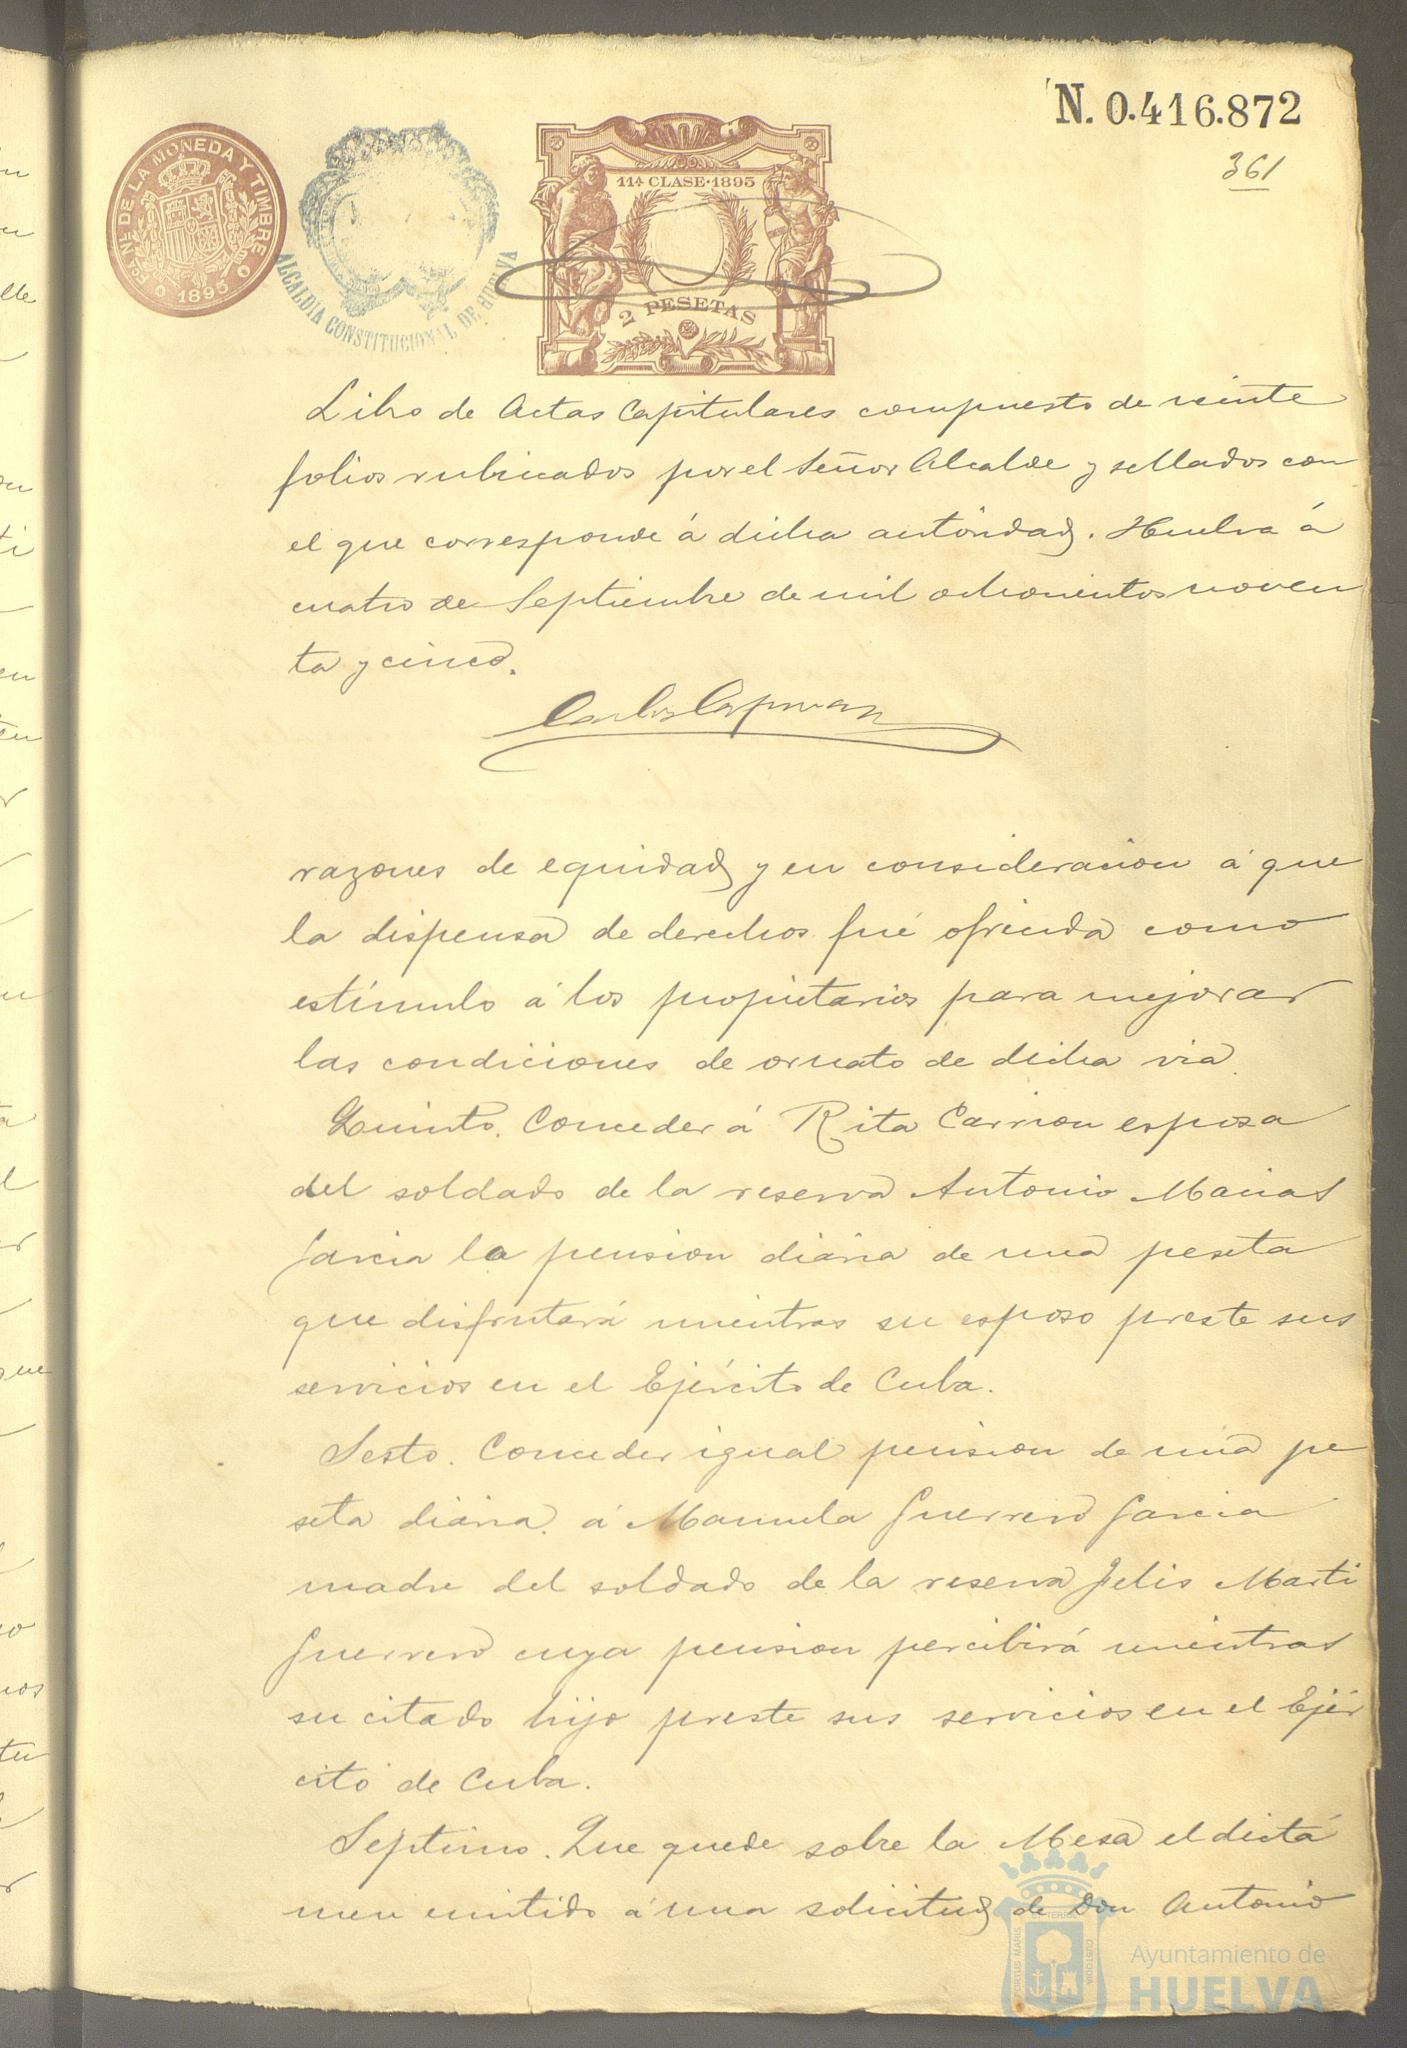 N. 0.416.872
361
FCA. NL. DE LA MONEDA Y TIMBRE
1895
ALCALDIA CONSTITUCIONAL DE HUELVA
11ª CLASE·1895
2 PESETAS
Libro de Actas Capitulares compuesto de veinte
folios rubricados por el Señor Alcalde y sellados con
el que corresponde á dicha autoridad. Huelva á
cuatro de Septiembre de mil ochocientos noven
ta y cinco.
razones de equidad y en consideracion á que
la dispensa de derechos fué ofrecida como
estímulo á los propietarios para mejorar
las condiciones de ornato de dicha via.
Quinto. Conceder á Rita Carrion esposa
del soldado de la reserva Antonio Macias
Garcia la pension diaria de una peseta
que disfrutará mientras su esposo preste sus
servicios en el Ejército de Cuba.
Sesto. Conceder igual pension de una pe
seta diaria á Manuela Guerrero Garcia
madre del soldado de la reserva Felis Marti
Guerrero cuya pension percibirá mientras
su citado hijo preste sus servicios en el Ejér
cito de Cuba.
Septimo. Que quede sobre la Mesa el dictá
men emitido á una solicitud de Don Antonio
PORTUS MARIS
CUSTODIA
Ayuntamiento de
HUELVA